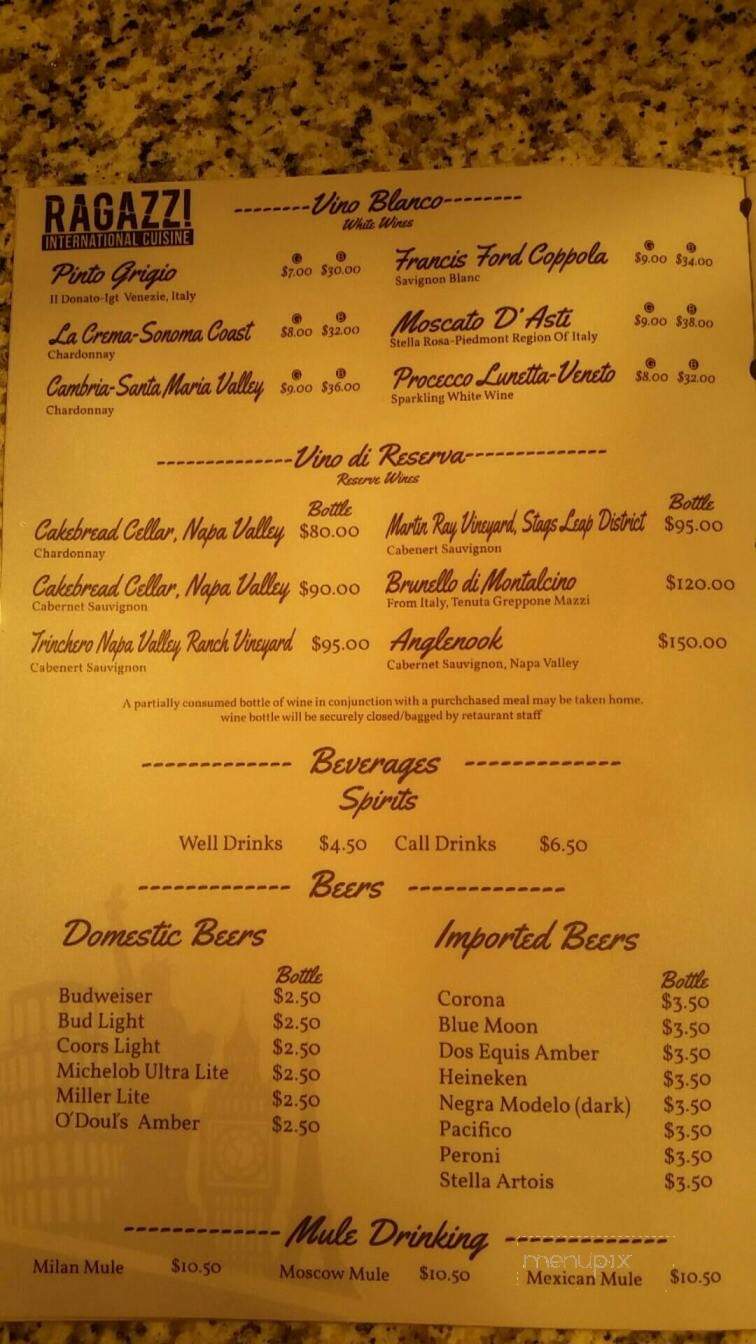 RAGAZZI
INTERNATIONAL CUISINE
--------Vino Blanco--------
White Wines
G B
Pinto Grigio $7.00 $30.00
Il Donato-Igt Venezie, Italy
G B
La Crema-Sonoma Coast $8.00 $32.00
Chardonnay
G B
Cambria-Santa Maria Valley $9.00 $36.00
Chardonnay
G B
Francis Ford Coppola $9.00 $34.00
Savignon Blanc
G B
Moscato D'Asti $9.00 $38.00
Stella Rosa-Piedmont Region Of Italy
G B
Procecco Lunetta-Veneto $8.00 $32.00
Sparkling White Wine
--------------Vino di Reserva--------------
Reserve Wines
Bottle
Cakebread Cellar, Napa Valley $80.00
Chardonnay
Cakebread Cellar, Napa Valley $90.00
Cabernet Sauvignon
Trinchero Napa Valley Ranch Vineyard $95.00
Cabenert Sauvignon
Bottle
Martin Ray Vineyard, Stags Leap District $95.00
Cabenert Sauvignon
Brunello di Montalcino $120.00
From Italy, Tenuta Greppone Mazzi
Anglenook $150.00
Cabernet Sauvignon, Napa Valley
A partially consumed bottle of wine in conjunction with a purchchased meal may be taken home.
wine bottle will be securely closed/bagged by retaurant staff
------------- Beverages -------------
Spirits
Well Drinks $4.50 Call Drinks $6.50
------------- Beers -------------
Domestic Beers
Bottle
Budweiser $2.50
Bud Light $2.50
Coors Light $2.50
Michelob Ultra Lite $2.50
Miller Lite $2.50
O'Doul's Amber $2.50
Imported Beers
Bottle
Corona $3.50
Blue Moon $3.50
Dos Equis Amber $3.50
Heineken $3.50
Negra Modelo (dark) $3.50
Pacifico $3.50
Peroni $3.50
Stella Artois $3.50
------------- Mule Drinking -------------
menupix
Milan Mule $10.50 Moscow Mule $10.50 Mexican Mule $10.50